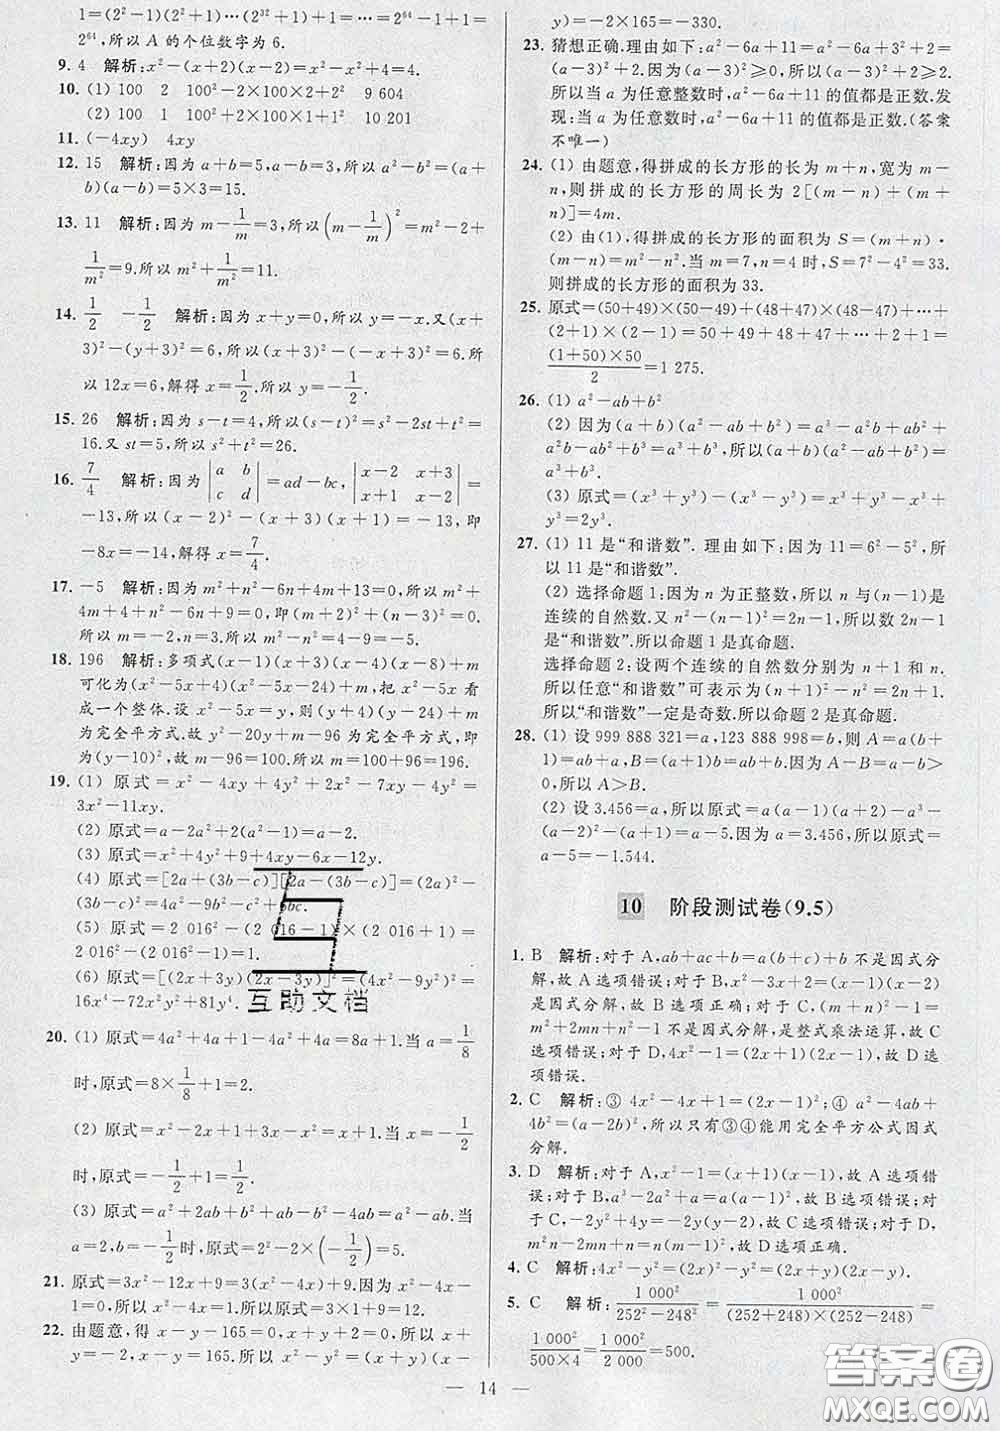 1=(2²−1)(2²+1)…(2³²+1)+1=2⁶⁴−1+1=
2⁶⁴,所以 A 的个位数字为 6.
9. 4 解析:x²−(x+2)(x−2)=x²−x²+4=4.
10. (1) 100 2 100²−2×100×2+2² 9 604
(2) 100 1 100²+2×100×1+1² 10 201
11. (−4xy) 4xy
12. 15 解析:因为 a+b=5,a−b=3,所以 a²−b²=(a+
b)(a−b)=5×3=15.
13. 11 解析:因为 m−1/m=3,所以(m−1/m)²=m²−2+
1/m²=9.所以 m²+1/m²=11.
14. 1/2 −1/2 解析:因为 x+y=0,所以 y=−x.又(x+
3)²−(y+3)²=6,所以(x+3)²−(−x+3)²=6.所
以 12x=6,解得 x=1/2.所以 y=−1/2.
15. 26 解析:因为 s−t=4,所以(s−t)²=s²−2st+t²=
16.又 st=5,所以 s²+t²=26.
16. 7/4 解析:因为 |a b; c d|=ad−bc,|x−2 x+3; x+1 x−2|=
−13,所以(x−2)²−(x+3)(x+1)=−13,即
−8x=−14,解得 x=7/4.
17. −5 解析:因为 m²+n²−6n+4m+13=0,所以 m²+
4m+4+n²−6n+9=0,即(m+2)²+(n−3)²=0.
所以 m=−2,n=3.所以 m−n=−2−3=−5.
18. 196 解析:多项式(x−1)(x+3)(x−4)(x−8)+m
可化为(x²−5x+4)(x²−5x−24)+m,把 x²−5x 看
成一个整体.设 x²−5x=y,则(y+4)(y−24)+m
为完全平方式.故 y²−20y+m−96 为完全平方式,即为
(y−10)²,故 m−96=100.所以 m=100+96=196.
19. (1) 原式=x²−4xy+4y²+2x²−7xy−4y²=
3x²−11xy.
(2) 原式=a−2a²+2(a²−1)=a−2.
(3) 原式=x²+4y²+9+4xy−6x−12y.
(4) 原式=[2a+(3b−c)][2a−(3b−c)]=(2a)²−
(3b−c)²=4a²−9b²−c²+6bc.
(5) 原式=2 016²−(2 016−1)×(2 016+1)=
2 016²−(2 016²−1)=1.
(6) 原式=[(2x+3y)(2x−3y)]²=(4x²−9y²)²=
16x⁴−72x²y²+81y⁴.
互助文档
20. (1) 原式=4a²+4a+1−4a²+4a=8a+1.当 a=1/8
时,原式=8×1/8+1=2.
(2) 原式=x²−2x+1+3x−x²=x+1.当 x=−1/2
时,原式=−1/2+1=1/2.
(3) 原式=a²+2ab+b²+ab−b²−4ab=a²−ab.当
a=2,b=−1/2时,原式=2²−2×(−1/2)=5.
21. 原式=3x²−12x+9=3(x²−4x)+9.因为 x²−4x−
1=0,所以 x²−4x=1.所以原式=3×1+9=12.
22. 由题意,得 x−y−165=0,x+y+2=0.所以 x+
y=−2,x−y=165.所以 x²−y²=(x+y)(x−
y)=−2×165=−330.
23. 猜想正确.理由如下:a²−6a+11=a²−6a+3²+2=
(a−3)²+2.因为(a−3)²≥0,所以(a−3)²+2≥2.
所以当 a 为任意整数时,a²−6a+11 的值都是正数.发
现:当 a 为任意数时,a²−6a+11 的值都是正数.(答案
不唯一)
24. (1) 由题意,得拼成的长方形的长为 m+n,宽为 m−
n,则拼成的长方形的周长为 2[(m−n)+(m+
n)]=4m.
(2) 由(1),得拼成的长方形的面积为 S=(m+n)·
(m−n)=m²−n².当 m=7,n=4 时,S=7²−4²=33.
则拼成的长方形的面积为 33.
25. 原式=(50+49)×(50−49)+(48+47)×(48−47)+…+
(2+1)×(2−1)=50+49+48+47+…+2+1=
(1+50)×50/2=1 275.
26. (1) a²−ab+b²
(2) 因为(a+b)(a²−ab+b²)=a³−a²b+ab²+
a²b−ab²+b³=a³+b³,所以(a+b)(a²−ab+b²)=
a³+b³.
(3) 原式=(x³+y³)−(x³−y³)=x³+y³−x³+
y³=2y³.
27. (1) 11 是“和谐数”. 理由如下:因为 11=6²−5²,所
以 11 是“和谐数”.
(2) 选择命题 1:因为 n 为正整数,所以 n 与(n−1)是
连续的自然数.又 n²−(n−1)²=2n−1,所以 2n−1
是“和谐数”.所以命题 1 是真命题.
选择命题 2:设两个连续的自然数分别为 n+1 和 n.
所以任意“和谐数”可表示为(n+1)²−n²=2n+1.
所以“和谐数”一定是奇数.所以命题 2 是真命题.
28. (1) 设 999 888 321=a,123 888 998=b,则 A=a(b+
1)=ab+a,B=(a+1)b=ab+b.因为 A−B=a−b>
0,所以 A>B.
(2) 设 3.456=a,所以原式=a(a−1)(a+2)−a³−
(a−2)²−(a+1)=a−5.因为 a=3.456,所以原式=
a−5=−1.544.
10 阶段测试卷(9.5)
1. B 解析:对于 A,ab+ac+b=a(b+c)+b 不是因式分
解,故 A 选项错误;对于 B,x²−3x+2=(x−1)(x−2)
是因式分解,故 B 选项正确;对于 C,(m+n)²−1=
m²+2mn+n²−1 不是因式分解,是整式乘法运算,故 C
选项错误;对于 D,4x²−1=(2x+1)(2x−1),故 D 选项
错误.
2. C 解析:③ 4x²−4x+1=(2x−1)²;④ a²−4ab+
4b²=(a−2b)²,所以只有③④能用完全平方公式因式
分解.
3. D 解析:对于 A,x²−1=(x+1)(x−1),故 A 选项错
误;对于 B,a³−2a²+a=a(a−1)²,故 B 选项错误;对
于 C,−2y²+4y=−2y(y−2),故 C 选项错误;对于 D,
m²n−2mn+n=n(m−1)²,故 D 选项正确.
4. C 解析:4x²−y²=(2x)²−y²=(2x+y)(2x−y).
5. C 解析:1 000²/(252²−248²)=1 000²/((252+248)×(252−248))=
1 000²/(500×4)=1 000²/2 000=500.
— 14 —
答案圈
MXQE.COM